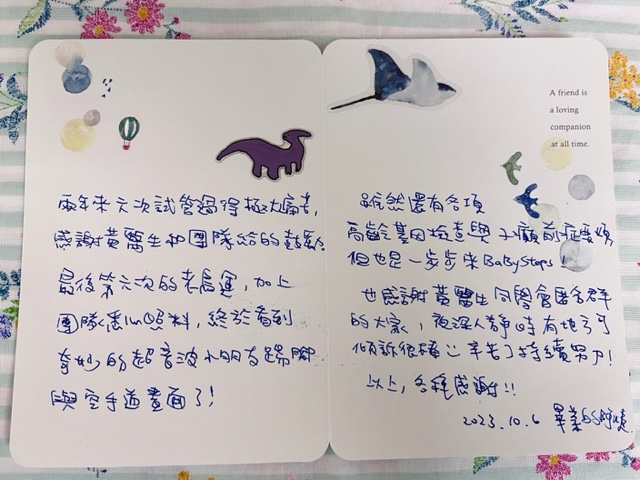 兩年來六次試管過得極大痛苦,
感謝黃醫生和團隊給的鼓勵
最後第六次的老處運,加上
團隊悉心照料,終於看到
奇妙的超音波小朋友踢腳
與空手道畫面了!
A friend is
a loving
companion
at all time.
雖然還有各項
高齡基因檢查與子癲前症要煩
但也是一步步來BabySteps!
也感謝黃醫生同學會匿名群
的大家,夜深人靜時有地方可
傾訴很棒 辛苦了持續努力!
以上,各種感謝!!
2023.10.6 畢業的